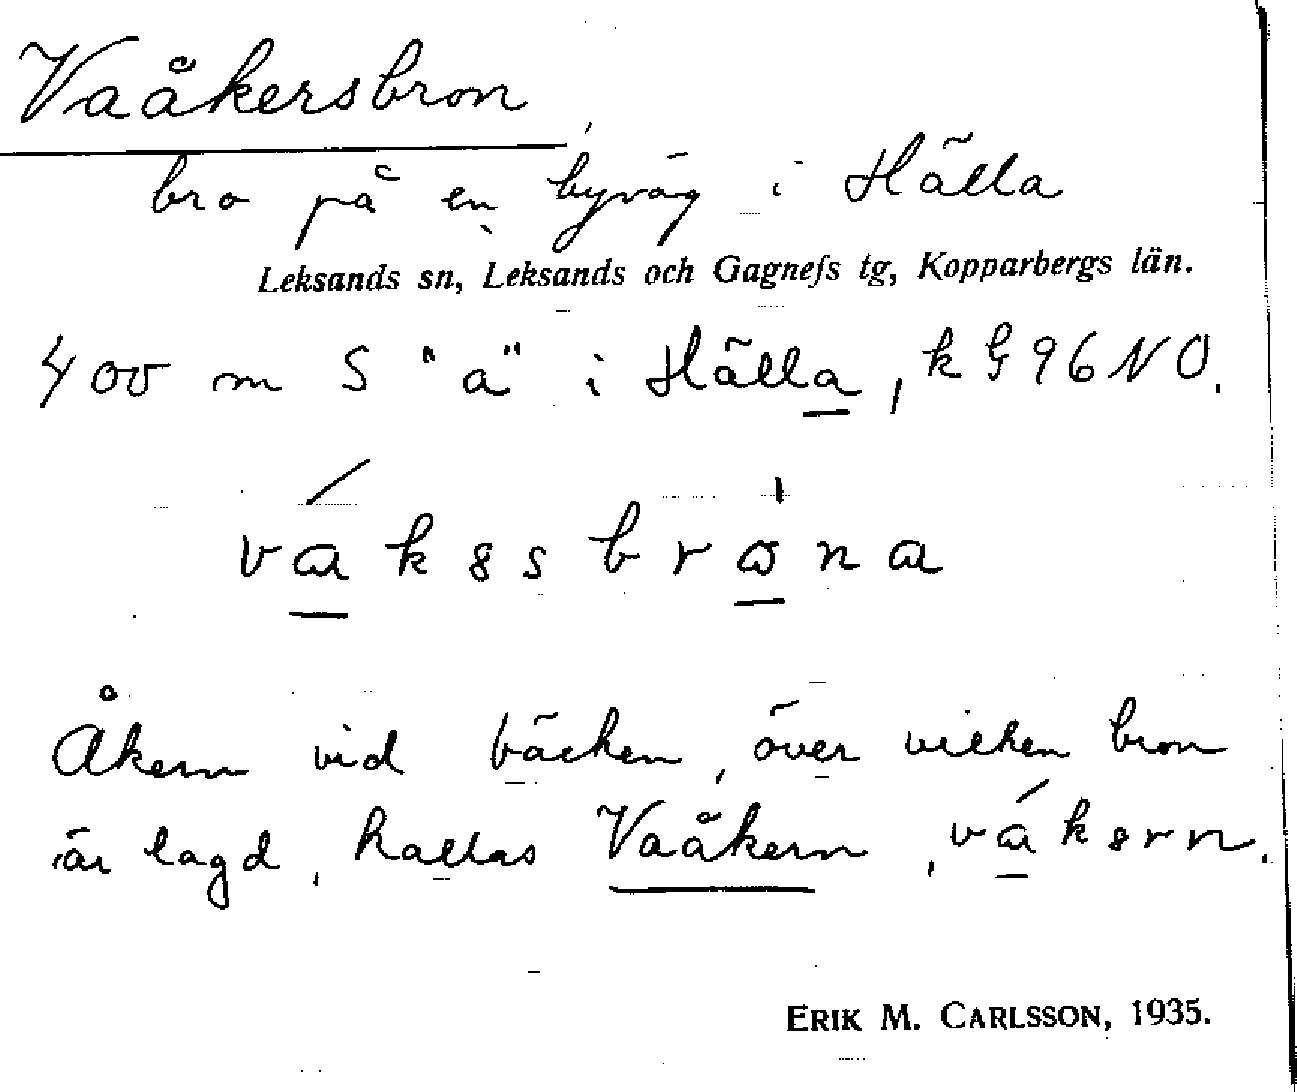 Vaåkersbron
bro på en byväg i Hälla
Leksands sn, Leksands och Gagnefs tg, Kopparbergs län.
400 m S "a" i Hälla, k 96 NO.
Åkern vid bäcken, över vilken bron
är lagd, kallas Vaåkern,
ERIK M. CARLSSON, 1935.